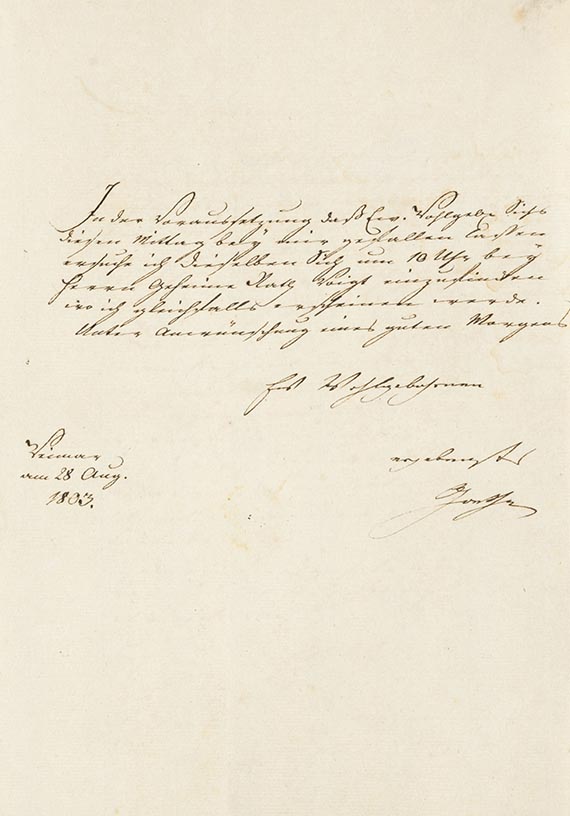 In der Voraussetzung daß Ew. Wohlgeb. Sichs
diesen Mittag bey mir gefallen lassen
ersuche ich dieselben Sich um 10 Uhr bey
Herrn Geheime Rath Voigt einzufinden
wo ich gleichfalls erscheinen werde.
Unter Anwünschung eines guten Morgens
Ew Wohlgebohrnen
Weimar
am 28 Aug.
1803.
ergebenster
Goethe